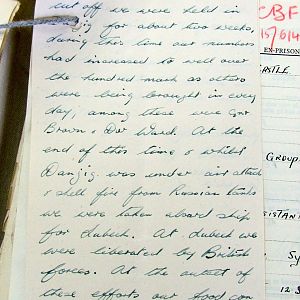 cut off we were held in
zig for about two weeks,
during this time out numbers
had increased to well over
the hundred mark as others
were being brought in every
day; among these were Gnr
Brown & Dvr Ward. At the
end of this time & whilst
Danzig was under air attack
& shell fire from Russian tanks
we were taken aboard ship
for Lubeck. At Lubeck we
were liberated by British
forces. At the outset of
these efforts our food con
CBF
15/6/4
EX-PRISON
CASTLE
GROUP
SISTANT
Sy
12.S